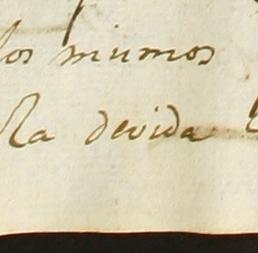 los mismos
la devida